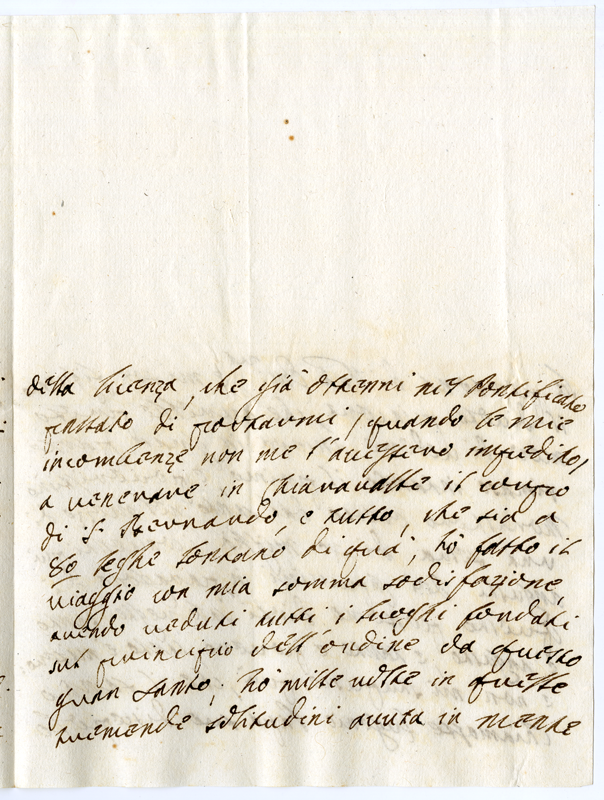 della licenza, che già ottenni nel Pontificato
passato di portarmi, quando le mie
incombenze non me l'avessero impedito,
a venerare in Chiaravalle il corpo
di S. Bernardo, e tutto, che sia a
80 leghe lontano di quà, hò fatto il
viaggio con mia somma sodisfazione,
avendo veduti tutti i luoghi fondati
sul principio dell'ordine da questo
gran santo; hò mille volte in queste
tremende solitudini avuta in mente